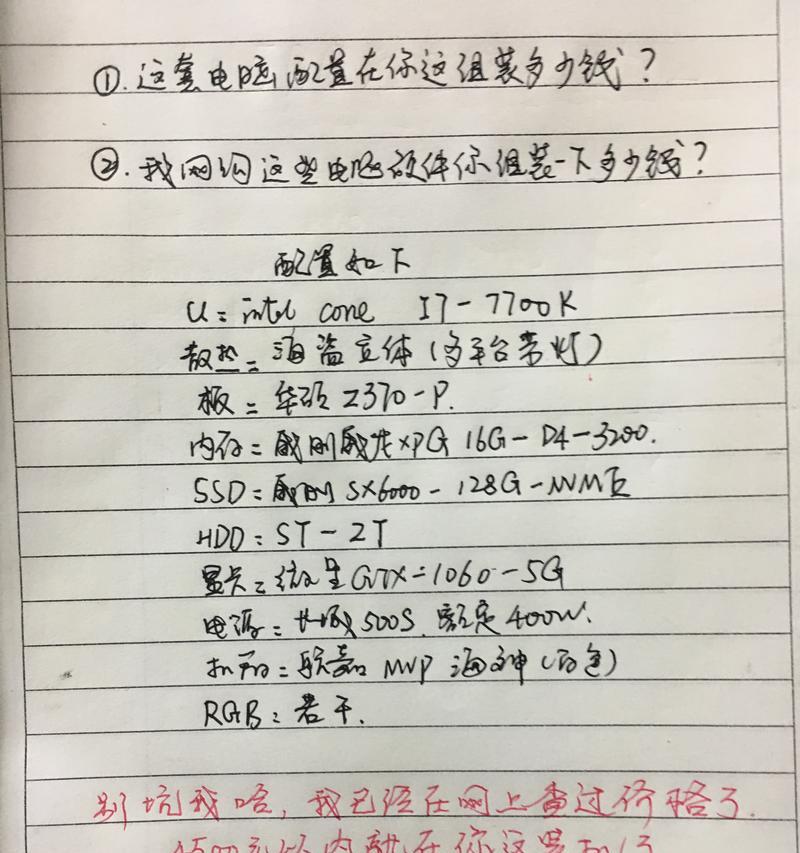 ①.这套电脑配置在你这组装多少钱?
②.我网购这些电脑硬件你组装一下多少钱?
配置如下
U=intel cone I7-7700K
散热=海盗立体(多平台带灯)
板=华硕Z370-P.
内存=威刚威龙XPG 16G-D4-3200.
SSD=威刚SX6000-128G-NVME
HDD:ST-2T
显卡=微星GTX=1060-5G
电源=长城500S.额定400W.
机箱=联嘉MVP海神(白色)
RGB:若干.
别坑我哈,我已经在网上查过价格了.
以内就在你这装机了